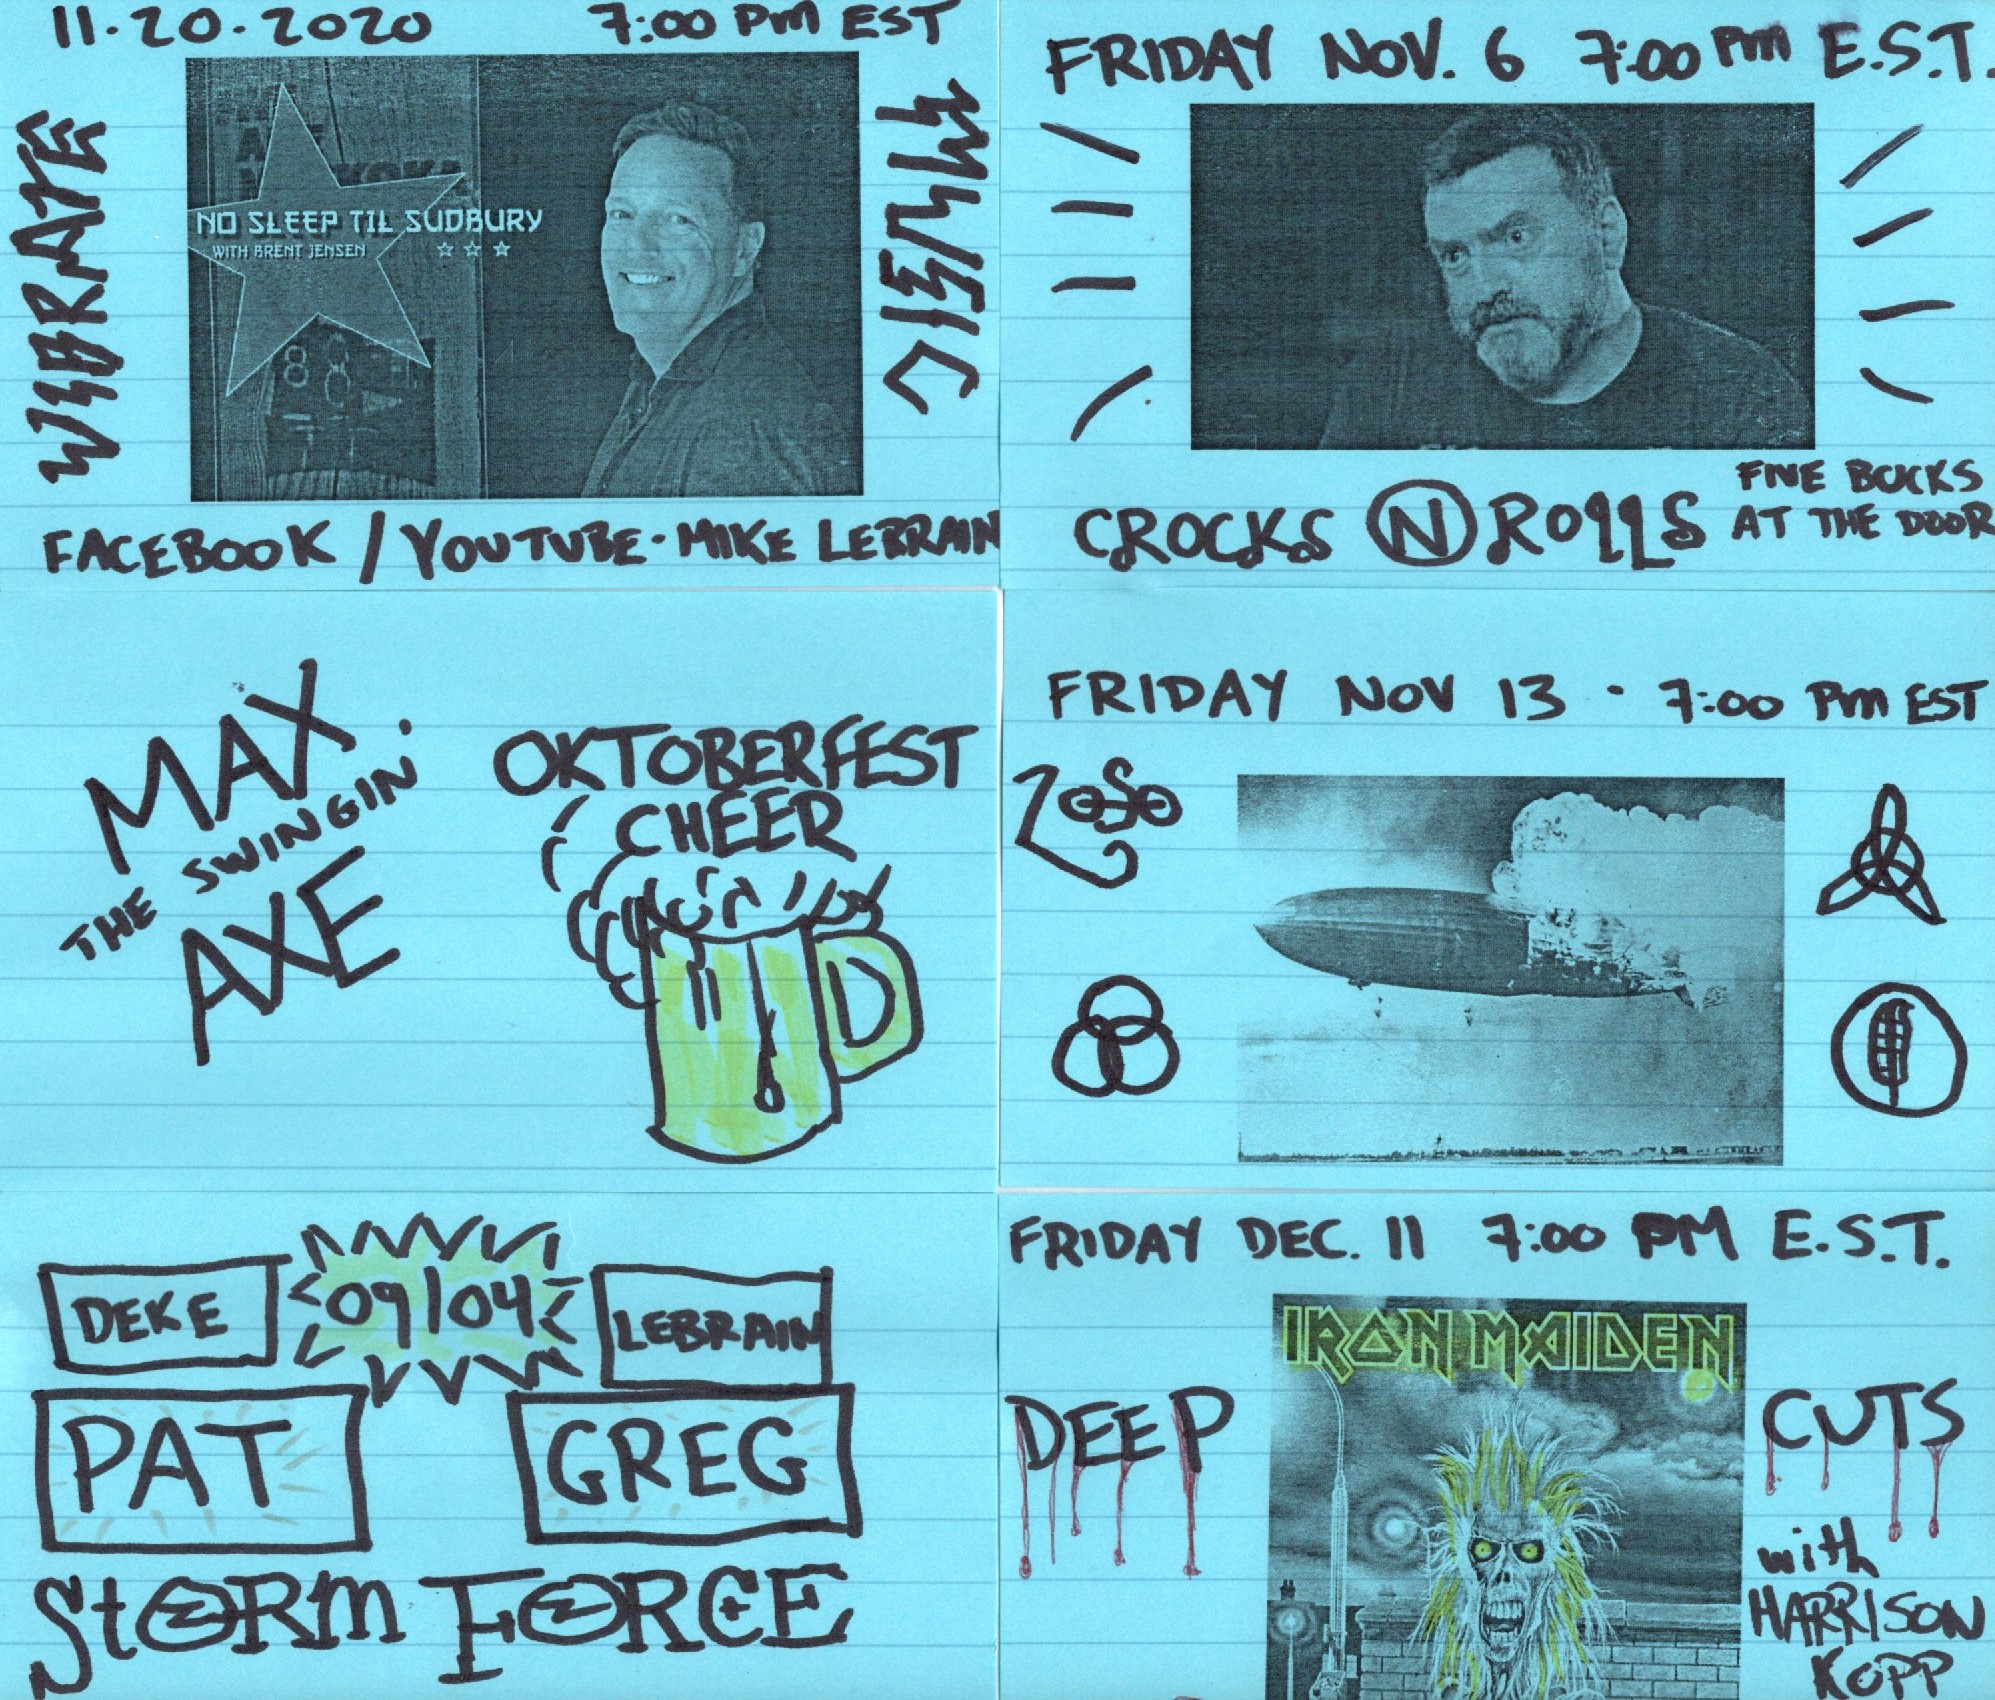 11·20·2020 7:00 PM EST
NO SLEEP TIL SUDBURY
WITH BRENT JENSEN
FACEBOOK / YOUTUBE · MIKE LEBRAIN
FRIDAY NOV. 6 7:00 PM E.S.T.
CROCKS N ROLLS
FIVE BUCKS
AT THE DOOR
MAX
THE SWINGIN'
AXE
OKTOBERFEST
CHEER
FRIDAY NOV 13 · 7:00 PM EST
ZoSo
DEKE
09/04
LEBRAIN
PAT
GREG
STORM FORCE
FRIDAY DEC. 11 7:00 PM E.S.T.
IRON MAIDEN
DEEP
CUTS
with
HARRISON
KOPP